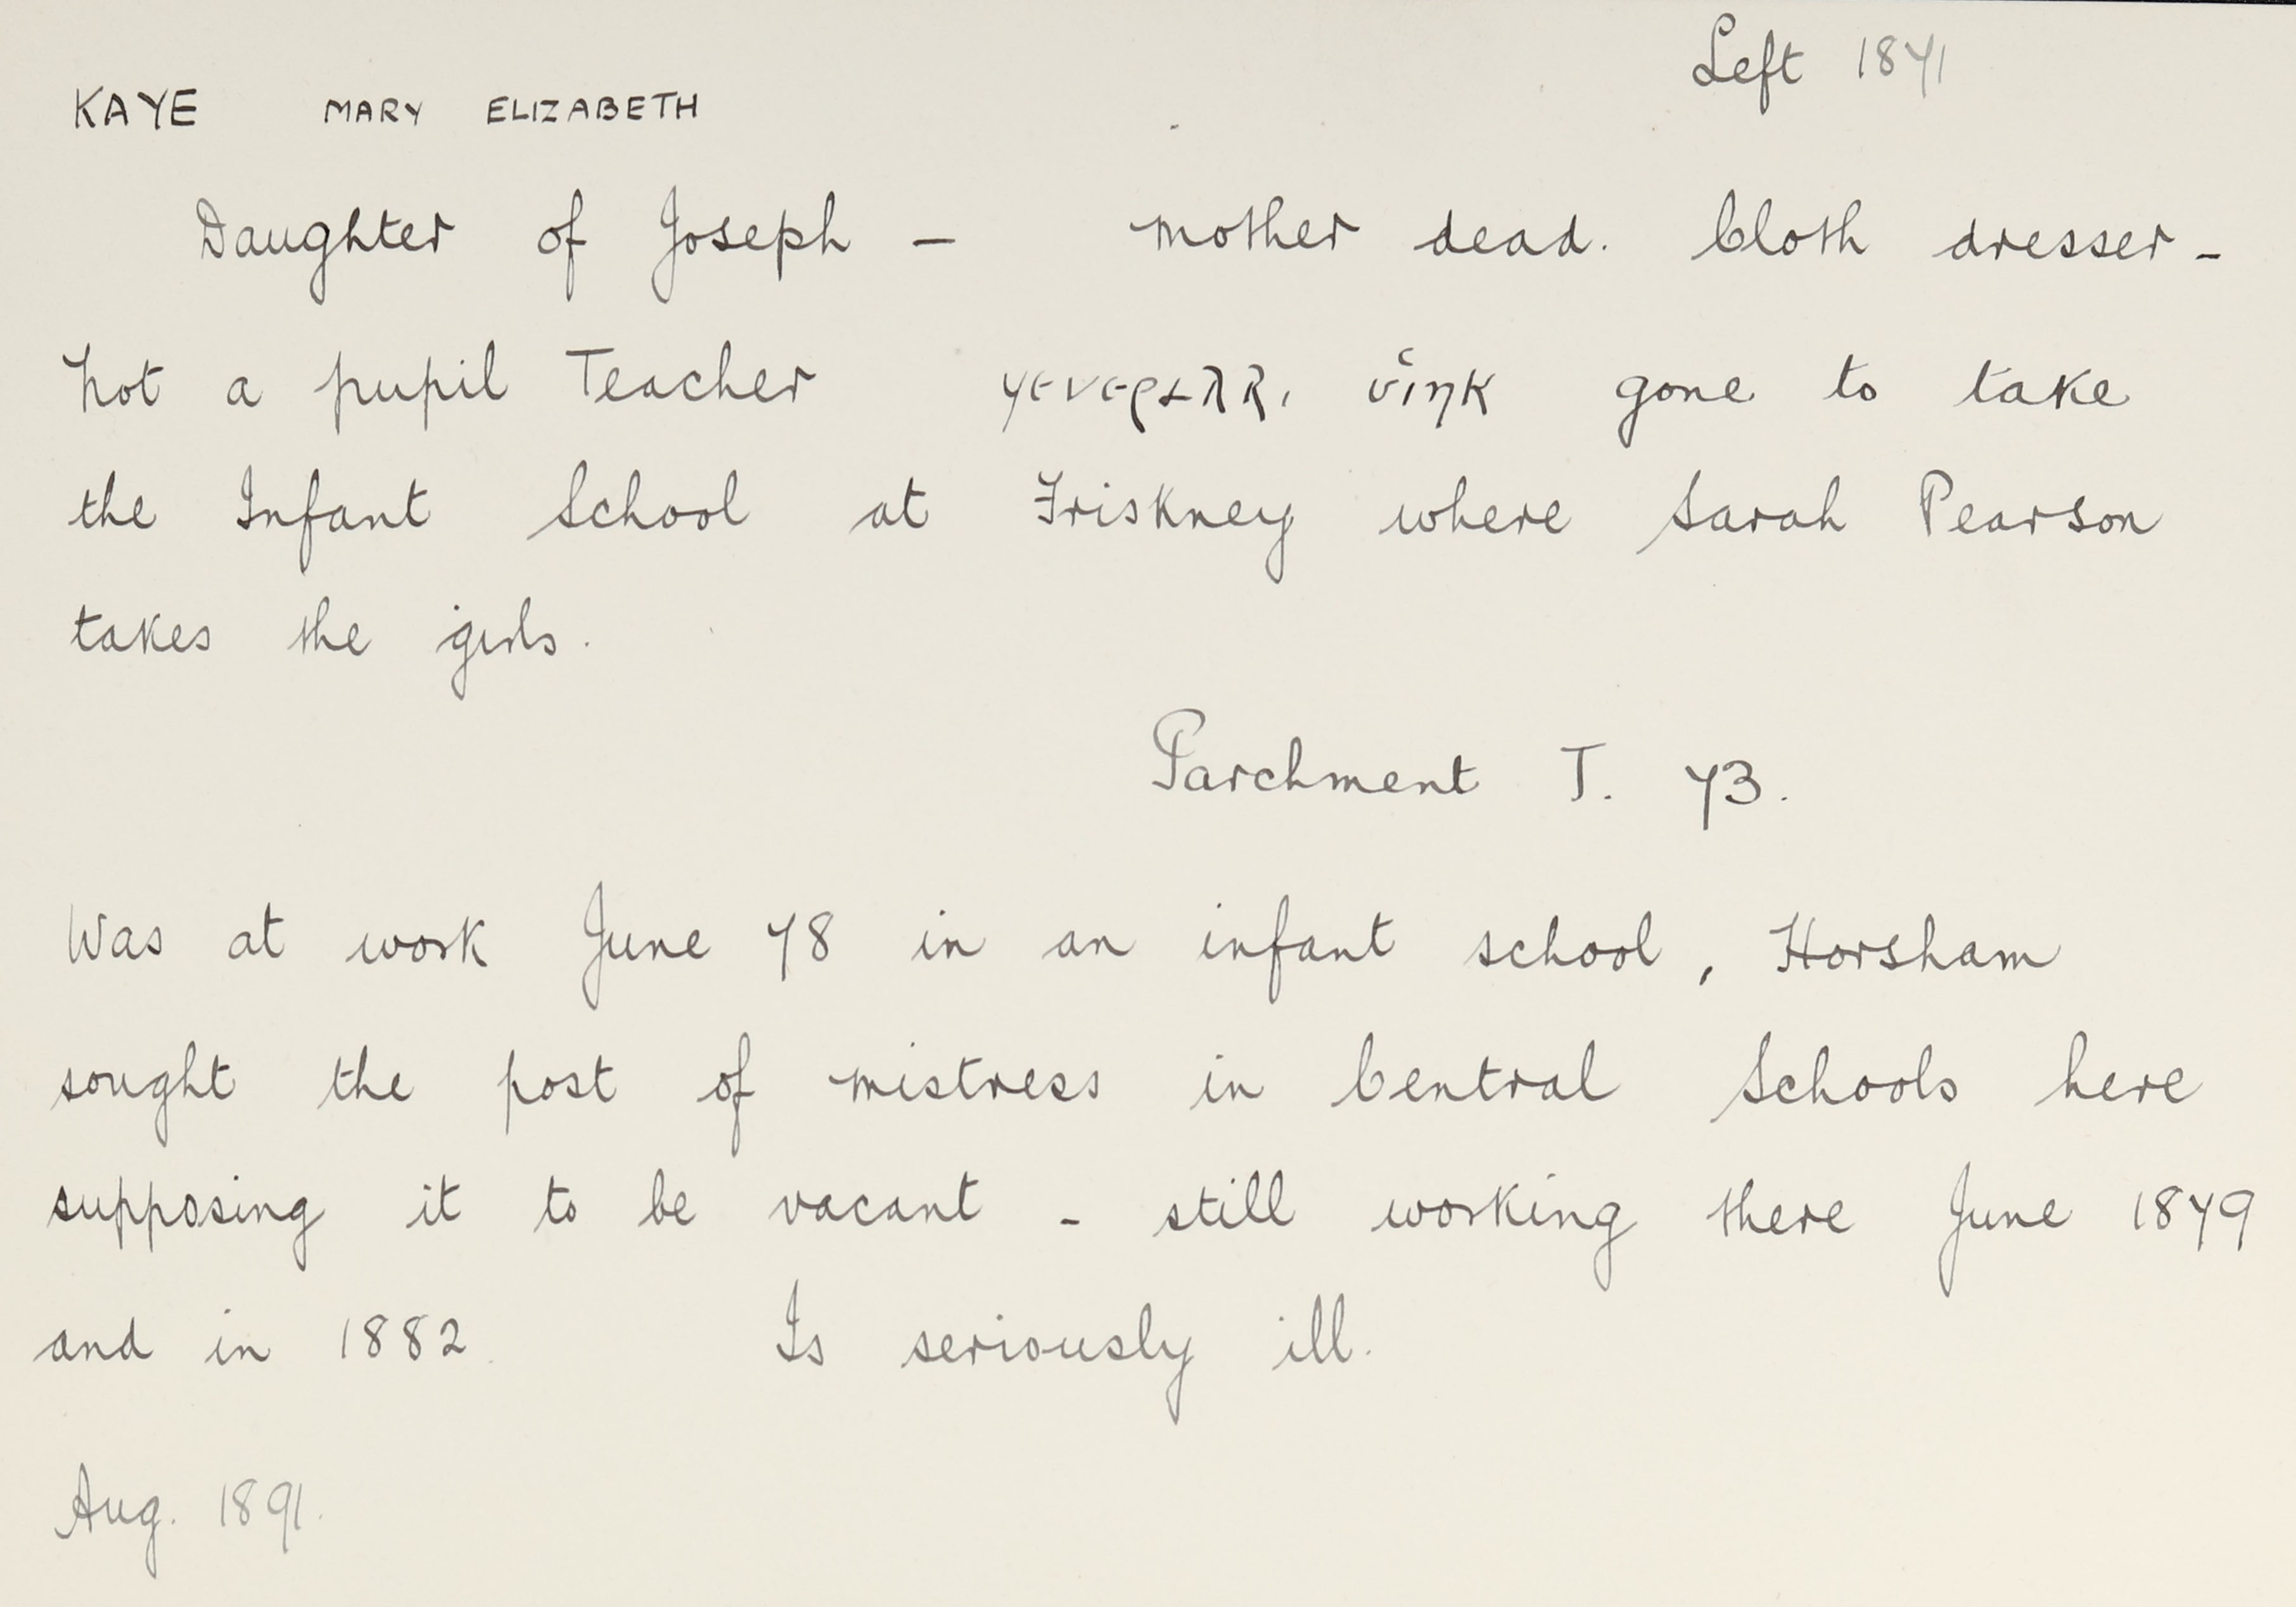 Left 1871
KAYE MARY ELIZABETH
Daughter of Joseph — mother dead. Cloth dresser -
Not a pupil Teacher gone to take
the Infant School at Friskney where Sarah Pearson
takes the girls.
Parchment T. 73.
Was at work June 78 in an infant school, Horsham
sought the post of mistress in Central Schools here
supposing it to be vacant - still working there June 1879
and in 1882. Is seriously ill.
Aug. 1891.